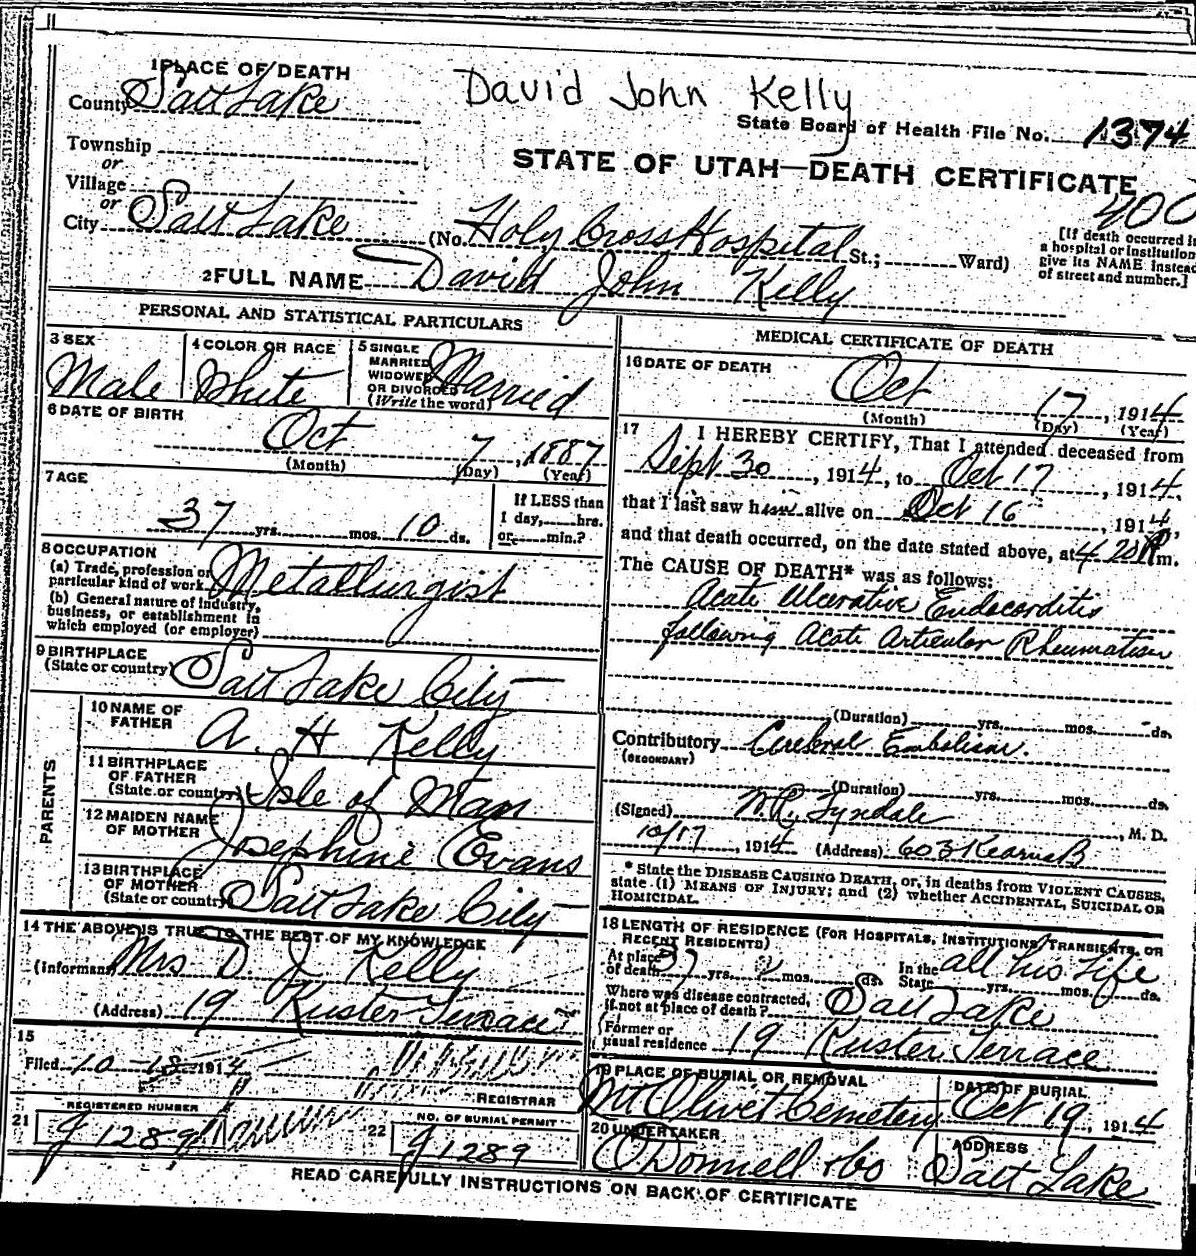 1 PLACE OF DEATH
County Salt Lake
David John Kelly
State Board of Health File No. 1374
Township
or
Village
or
City Salt Lake
STATE OF UTAH—DEATH CERTIFICATE
400
(No. Holy Cross Hospital St.; Ward)
[If death occurred in
a hospital or institution
give its NAME instead
of street and number.]
2 FULL NAME David John Kelly
PERSONAL AND STATISTICAL PARTICULARS
3 SEX
Male
4 COLOR OR RACE
White
5 SINGLE
MARRIED
WIDOWED
OR DIVORCED
(Write the word)
Married
6 DATE OF BIRTH
Oct 7, 1887
(Month) (Day) (Year)
7 AGE
37 yrs. mos. 10 ds.
If LESS than
1 day, hrs.
or min.?
8 OCCUPATION
(a) Trade, profession or
particular kind of work
Metallurgist
(b) General nature of industry,
business, or establishment in
which employed (or employer)
9 BIRTHPLACE
(State or country)
Salt Lake City
PARENTS
10 NAME OF
FATHER
A. H Kelly
11 BIRTHPLACE
OF FATHER
(State or country)
Isle of Man
12 MAIDEN NAME
OF MOTHER
Josephine Evans
13 BIRTHPLACE
OF MOTHER
(State or country)
Salt Lake City
14 THE ABOVE IS TRUE TO THE BEST OF MY KNOWLEDGE
(Informant) Mrs D J Kelly
(Address) 19 Kuster Terrace
15
Filed 10-18-1914
REGISTRAR
21 REGISTERED NUMBER
J 1289
22 NO. OF BURIAL PERMIT
J 1289
MEDICAL CERTIFICATE OF DEATH
16 DATE OF DEATH
Oct 17, 1914
(Month) (Day) (Year)
17 I HEREBY CERTIFY, That I attended deceased from
Sept 30, 1914, to Oct 17, 1914,
that I last saw him alive on Oct 16, 1914,
and that death occurred, on the date stated above, at 4 20 m.
The CAUSE OF DEATH* was as follows:
Acute Ulcerative Endocarditis
following Acute Articular Rheumatism
(Duration) yrs. mos. ds.
Contributory Cerebral Embolism.
(SECONDARY)
(Duration) yrs. mos. ds.
(Signed) Tyndale, M. D.
10/17, 1914 (Address) 603 Kearns B
* State the DISEASE CAUSING DEATH, or, in deaths from VIOLENT CAUSES,
state (1) MEANS OF INJURY; and (2) whether ACCIDENTAL, SUICIDAL OR
HOMICIDAL.
18 LENGTH OF RESIDENCE (FOR HOSPITALS, INSTITUTIONS, TRANSIENTS, OR
RECENT RESIDENTS)
At place
of death 37 yrs. mos. ds.
In the
State all his life yrs. mos. ds.
Where was disease contracted,
if not at place of death?
Salt Lake
Former or
usual residence 19 Kuster Terrace
19 PLACE OF BURIAL OR REMOVAL
Mt Olivet Cemetery
DATE OF BURIAL
Oct 19, 1914
20 UNDERTAKER
O'Donnell & Co
ADDRESS
Salt Lake
READ CAREFULLY INSTRUCTIONS ON BACK OF CERTIFICATE